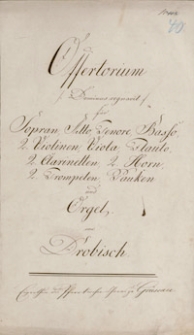 Offertorium
/: Dominus regnavit :/
für
Sopran, Alto, Tenore, Basso,
2 Violinen, Viola, Flauto,
2 Clarinetten, 2 Horn,
2 Trompeten, Pauken
und
Orgel,
von
Drobisch.